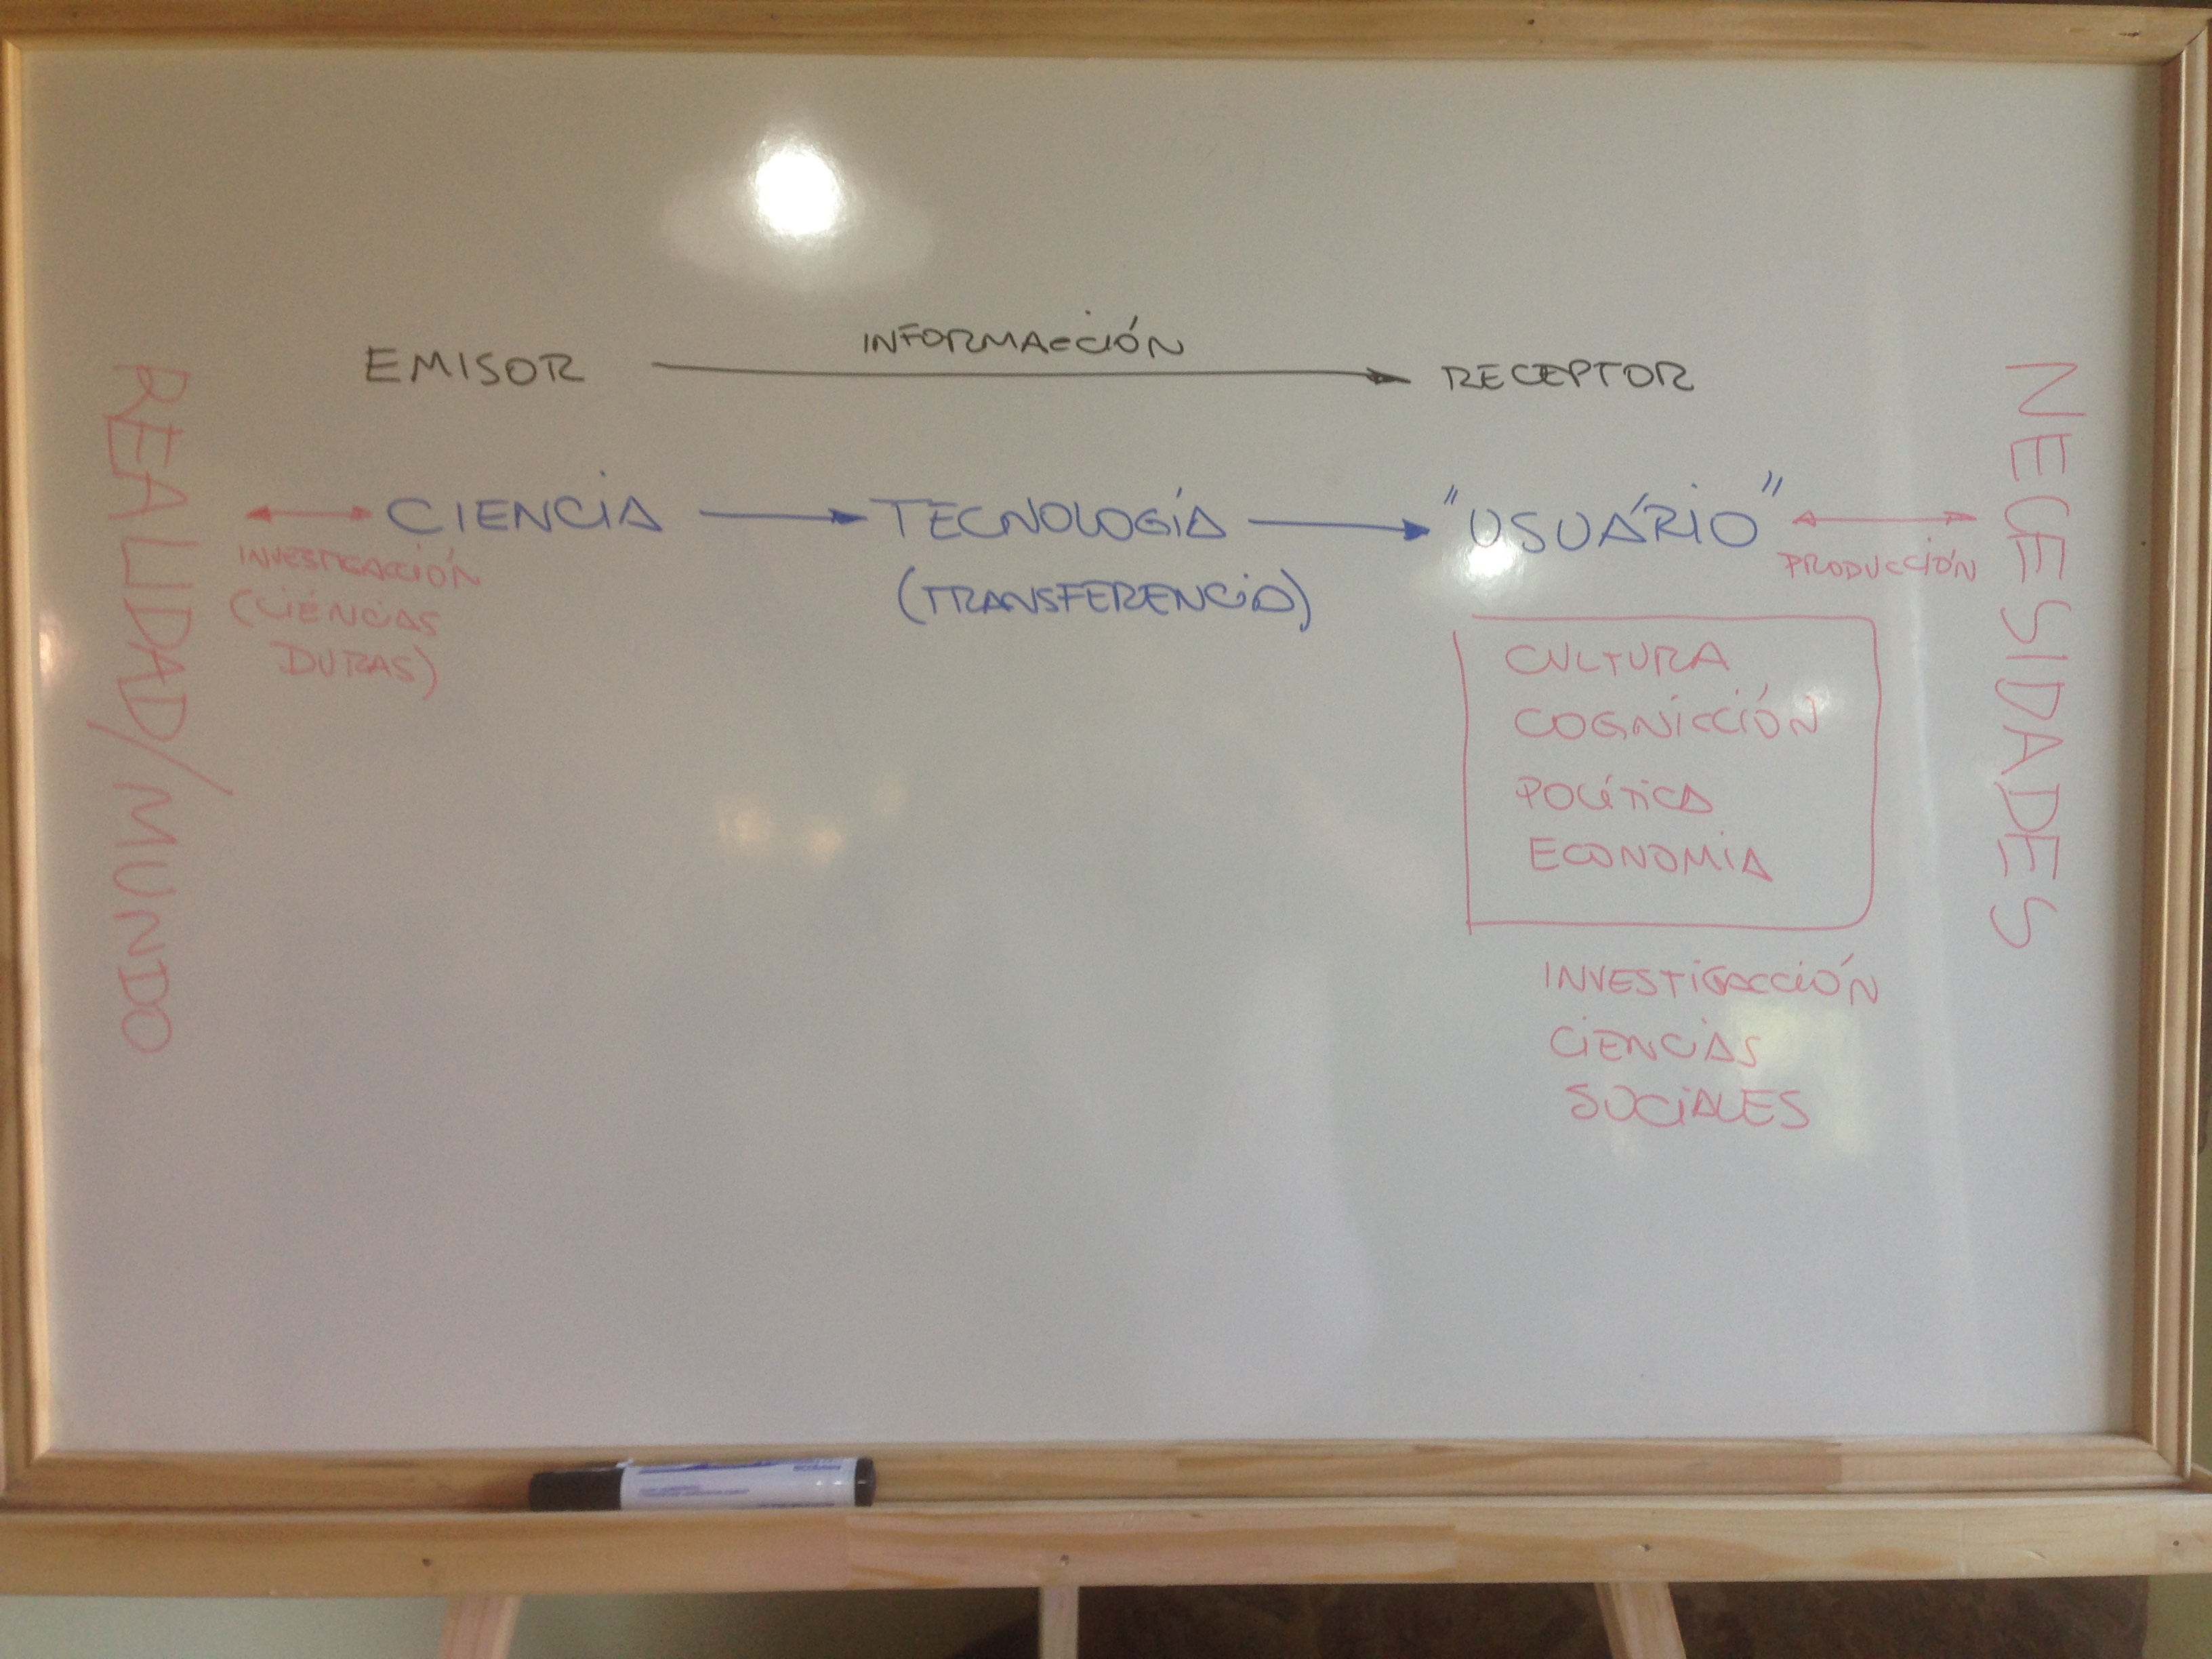 INFORMACCIÓN
EMISOR
RECEPTOR
REALIDAD/MUNDO
CIENCIA
TECNOLOGÍA
"USUÁRIO"
NECESIDADES
INVESTIGACCIÓN
(CIÉNCIAS
DURAS)
(TRANSFERENCIA)
PRODUCCIÓN
CULTURA
COGNICCIÓN
POLÍTICA
ECONOMIA
INVESTIGACCIÓN
CIENCIAS
SOCIALES